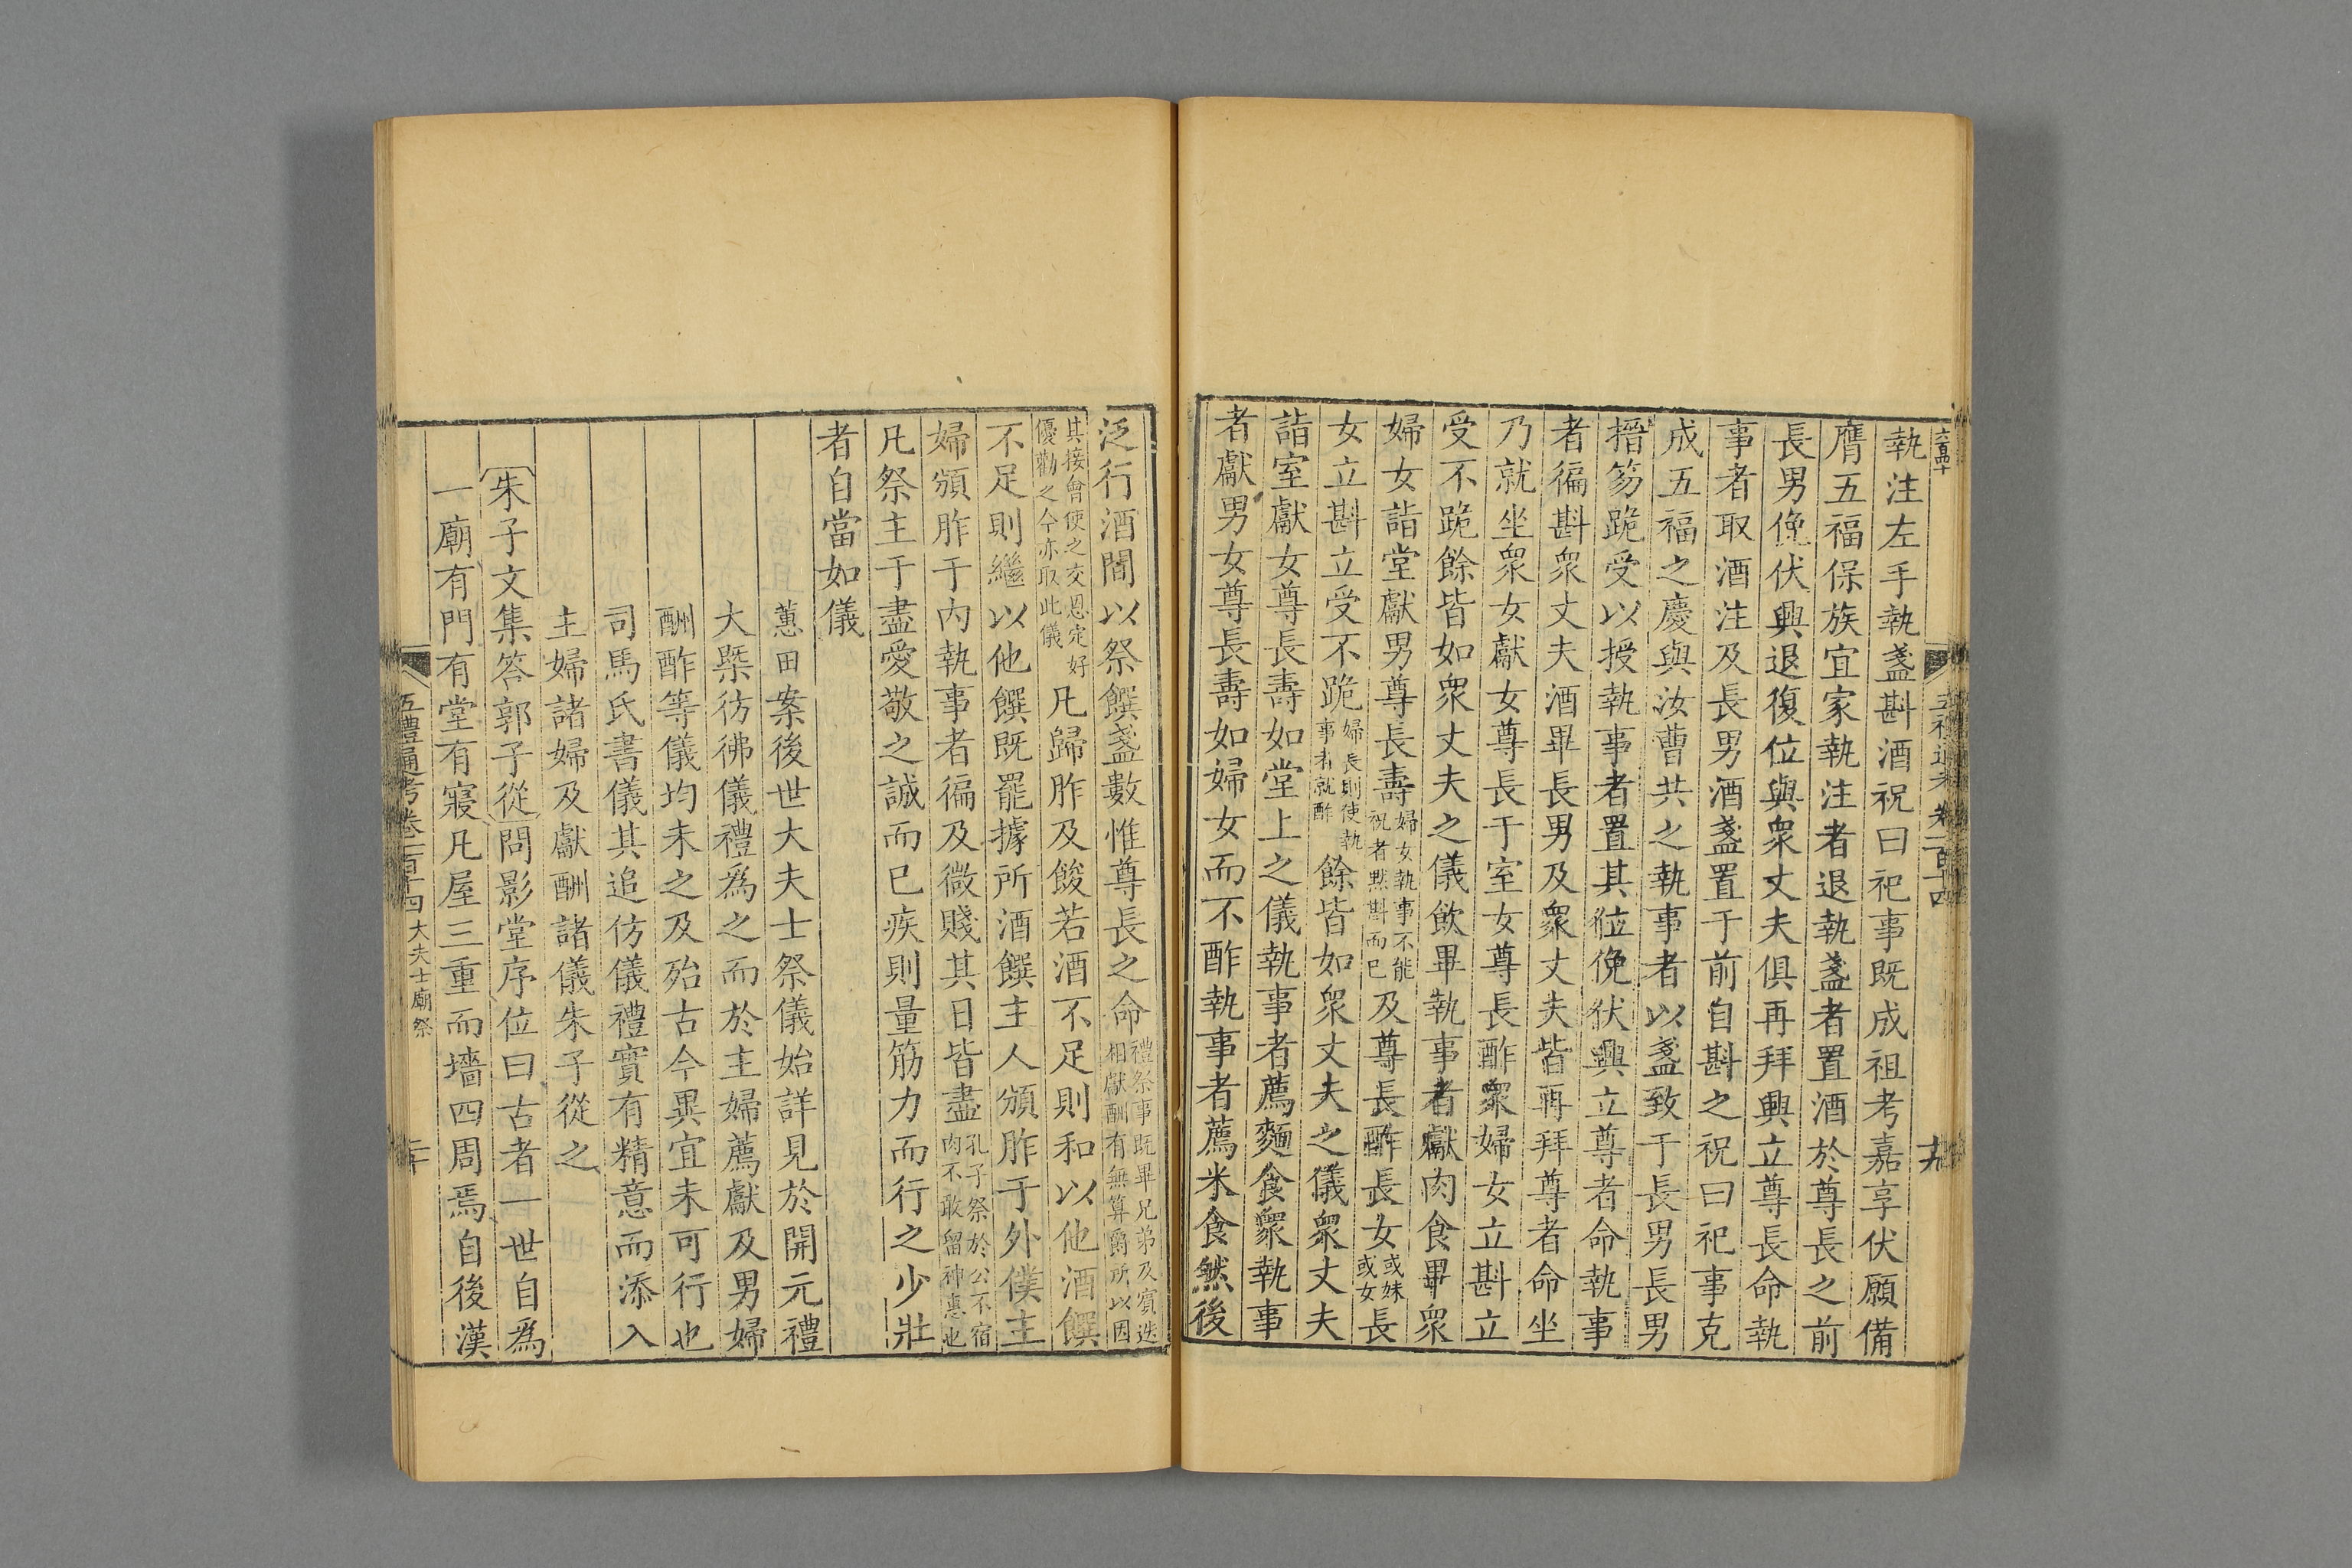 執注左手執盞斟酒祝曰祀事既成祖考嘉享伏願備
膺五福保族宜家執注者退執盞者置酒於尊長之前
長男俛伏興退復位與衆丈夫俱再拜興立尊長命執
事者取酒注及長男酒盞置于前自斟之祝曰祀事克
成五福之慶與汝曹共之執事者以盞致于長男長男
搢笏跪受以授執事者置其位俛伏興立尊者命執事
者徧斟衆丈夫酒畢長男及衆丈夫皆再拜尊者命坐
乃就坐衆女獻女尊長于室女尊長酢衆婦女立斟立
受不跪餘皆如衆丈夫之儀飲畢執事者獻肉食畢衆
婦女詣堂獻男尊長壽婦女執事不能祝者黙斟而已及尊長酢長女或妹或女長
女立斟立受不跪婦長則使執事者就酢餘皆如衆丈夫之儀衆丈夫
詣室獻女尊長壽如堂上之儀執事者薦麵食衆執事
者獻男女尊長壽如婦女而不酢執事者薦米食然後
五禮通考卷一百十四
十九
泛行酒間以祭饌盞數惟尊長之命禮祭事既畢兄弟及賓迭相獻酬有無算爵所以因
其接會使之交恩定好優勸之今亦取此儀凡歸胙及餕若酒不足則和以他酒饌
不足則繼以他饌既罷據所酒饌主人頒胙于外僕主
婦頒胙于內執事者徧及微賤其日皆盡孔子祭於公不宿肉不敢留神惠也
凡祭主于盡愛敬之誠而已疾則量筋力而行之少壯
者自當如儀
蕙田案後世大夫士祭儀始詳見於開元禮
大槩彷彿儀禮為之而於主婦薦獻及男婦
酬酢等儀均未之及殆古今異宜未可行也
司馬氏書儀其追仿儀禮實有精意而添入
主婦諸婦及獻酬諸儀朱子從之
朱子文集答郭子從問影堂序位曰古者一世自為
一廟有門有堂有寢凡屋三重而墻四周焉自後漢
五禮通考卷一百十四 大夫士廟祭
二十